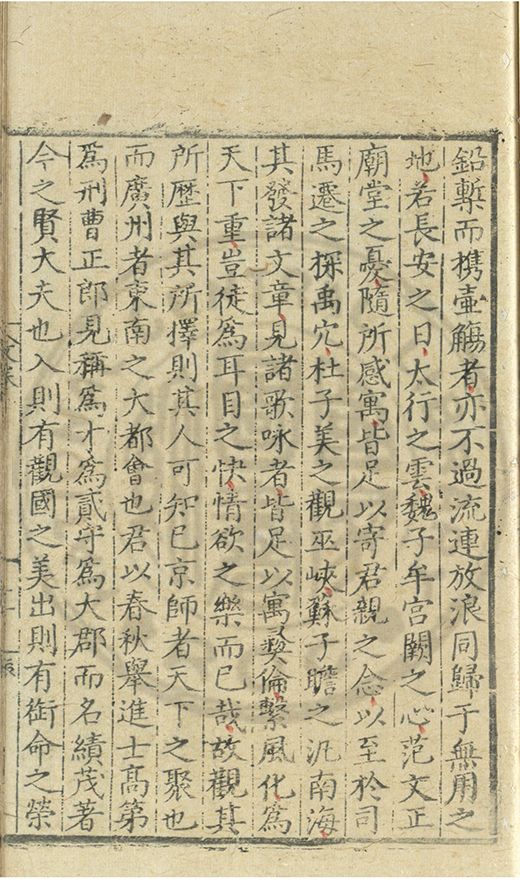 鉛槧而携壺觴者亦不過流連放浪同歸于無用之
地若長安之日太行之雲魏子牟宫闕之心范文正
廟堂之憂隨所感寓皆足以寄君親之念以至於司
馬遷之探禹穴杜子美之觀巫峽蘇子瞻之汎南海
其發諸文章見諸歌咏者皆足以寓彛倫繫風化為
天下重豈徒為耳目之快情欲之樂而已哉故觀其
所歷與其所擇則其人可知已京師者天下之聚也
而廣州者東南之大都會也君以春秋舉進士高第
為刑曹正郎見稱為才為貳守為大郡而名績茂著
今之賢大夫也入則有觀國之美出則有銜命之榮